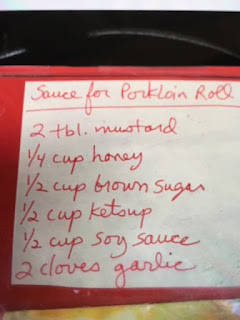 Sauce for Porkloin Roll
2 tbl. mustard
1/4 cup honey
1/2 cup brown sugar
1/2 cup ketsup
1/2 cup soy sauce
2 cloves garlic